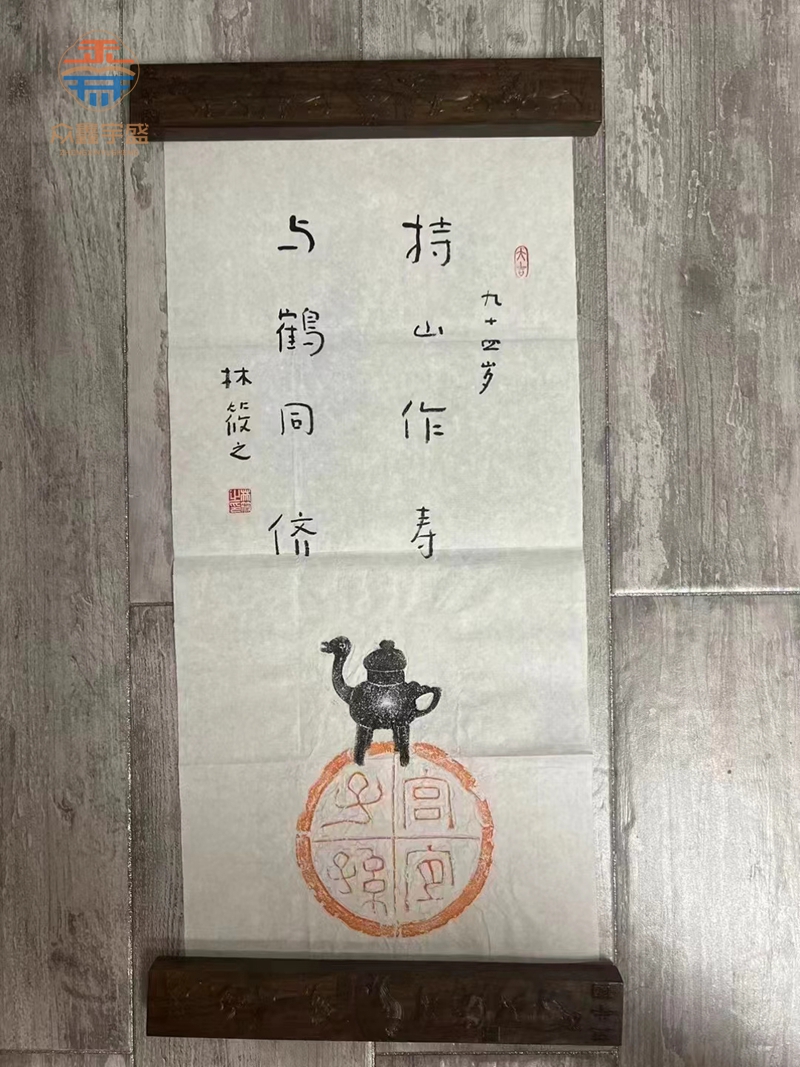 大吉
九十四岁
持山作寿
与鹤同侪
林筱之
子孫